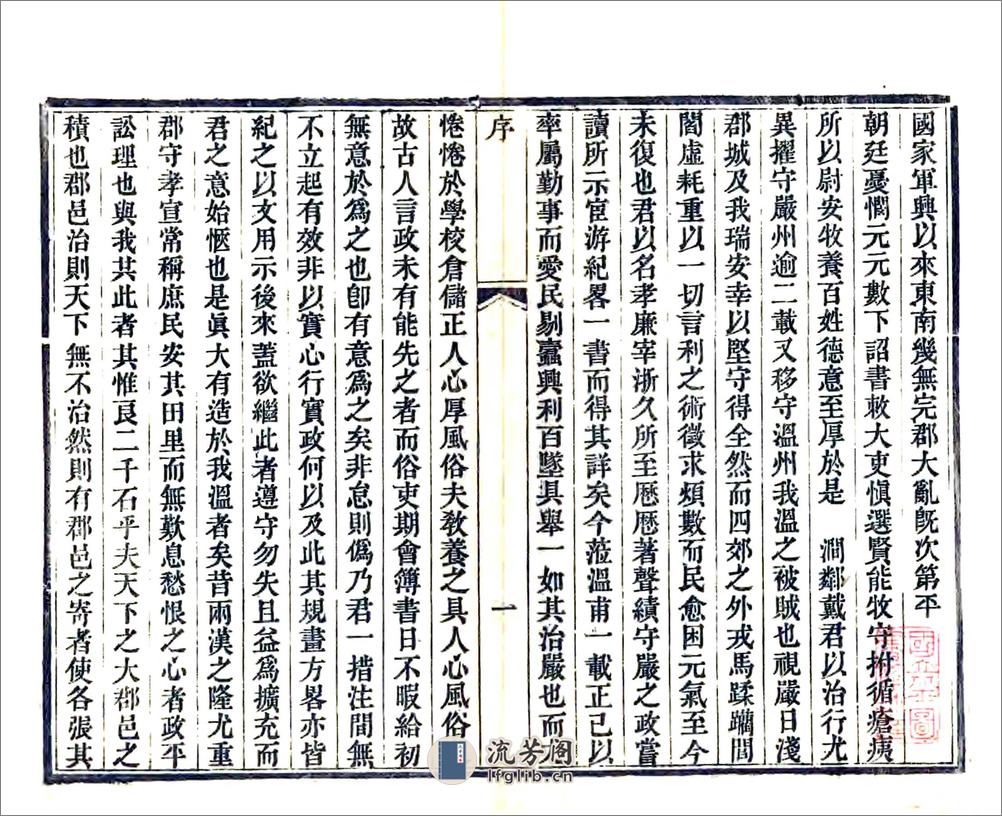 國家軍興以來東南幾無完郡大亂旣次第平
朝廷憂憫元元數下詔書敕大吏愼選賢能牧守拊循瘡痍
所以尉安牧養百姓德意至厚於是 澗鄰戴君以治行尤
異擢守嚴州逾二載又移守溫州我溫之被賊也視嚴日淺
郡城及我瑞安幸以堅守得全然而四郊之外戎馬蹂躪閭
閻虛耗重以一切言利之術徵求煩數而民愈困元氣至今
未復也君以名孝廉宰浙久所至厯厯著聲績守嚴之政嘗
讀所示宦游紀畧一書而得其詳矣今蒞溫甫一載正己以
率屬勤事而愛民剔蠹興利百墜具舉一如其治嚴也而
序
一
惓惓於學校倉儲正人心厚風俗夫敎養之具人心風俗
故古人言政未有能先之者而俗吏期會簿書日不暇給初
無意於爲之也卽有意爲之矣非怠則僞乃君一措注間無
不立起有效非以實心行實政何以及此其規畫方畧亦皆
紀之以文用示後來蓋欲繼此者遵守勿失且益爲擴充而
君之意始愜也是眞大有造於我溫者矣昔兩漢之隆尤重
郡守孝宣常稱庶民安其田里而無歎息愁恨之心者政平
訟理也與我其此者其惟良二千石乎夫天下之大郡邑之
積也郡邑治則天下無不治然則有郡邑之寄者使各張其
流芳阁
lfglib.cn